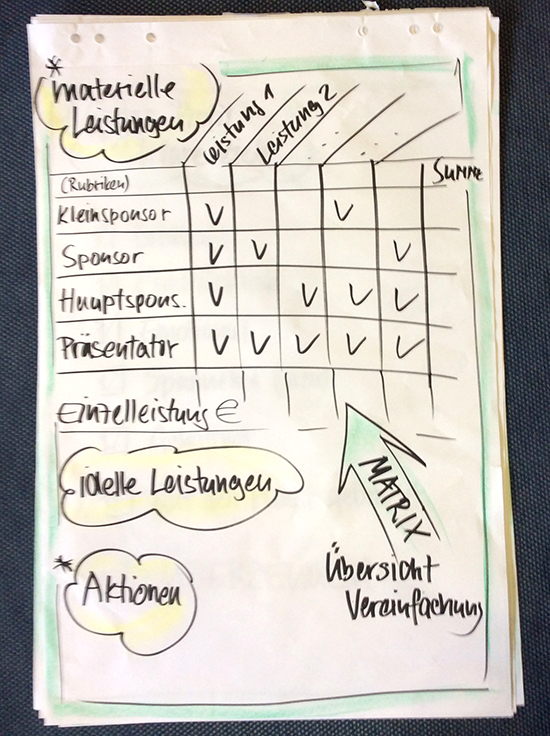 * materielle
Leistungen
Leistung 1
Leistung 2
. . .
. . .
Summe
(Rubriken)
Kleinsponsor V V
Sponsor V V V
Hauptspons. V V V V
Präsentator V V V V V
Einzelleistung €
idelle Leistungen
MATRIX
* Aktionen
Übersicht
Vereinfachung